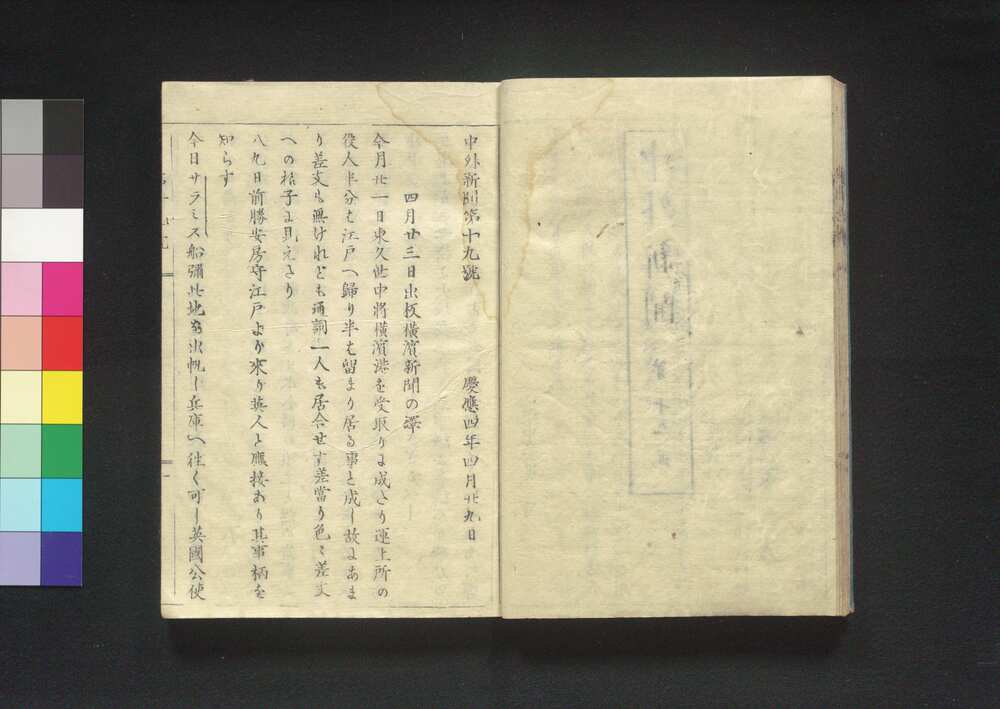 中外新聞第十九號 慶應四年四月廿九日
四月廿三日出板横濱新聞の譯
今月廿一日東久世中將横濱港を受取りに成さり運上所の
役人半分は江戸へ歸り半は留まり居る事と成し故にあま
り差支も無けれども通詞一人も居合せず差當り色々差支
への様子に見えたり
八九日前勝安房守江戸より來り英人と應接あり其事柄を
知らず
今日サラミス船彌此地を出帆し兵庫へ往く可し英國公使